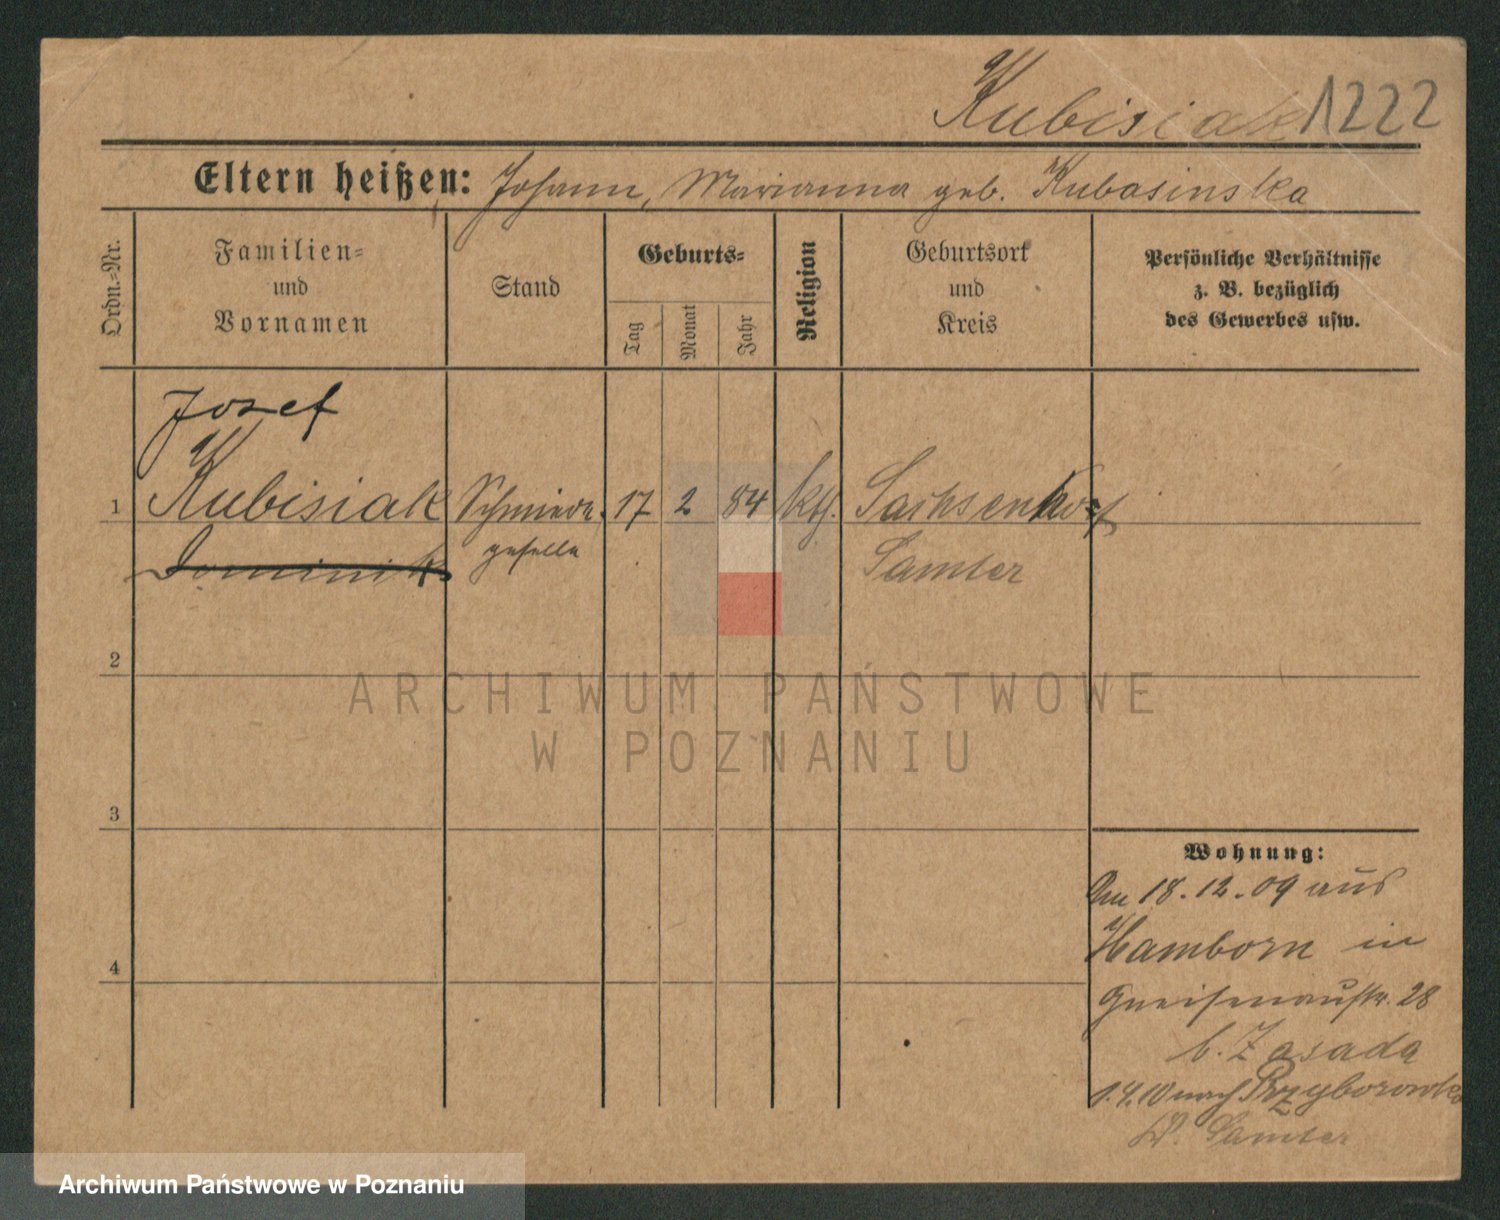 Kubisiak 1222
Eltern heißen: Johann, Marianna geb. Kubasinska
Ordn.-Nr.
Familien-
und
Vornamen
Stand
Geburts-
Tag
Monat
Jahr
Religion
Geburtsort
und
Kreis
Persönliche Verhältnisse
z. B. bezüglich
des Gewerbes usw.
Josef
1 Kubisiak Schmiede- 17 2 84 kth.
Dominik geselle Samter
2
3
4
ARCHIWUM PAŃSTWOWE
W POZNANIU
Wohnung:
Am 18.12.09 aus
Hamborn in
Gneisenaustr. 28
b. Zasada
1.4.10 nach Przyborowko
Kr. Samter
Archiwum Państwowe w Poznaniu